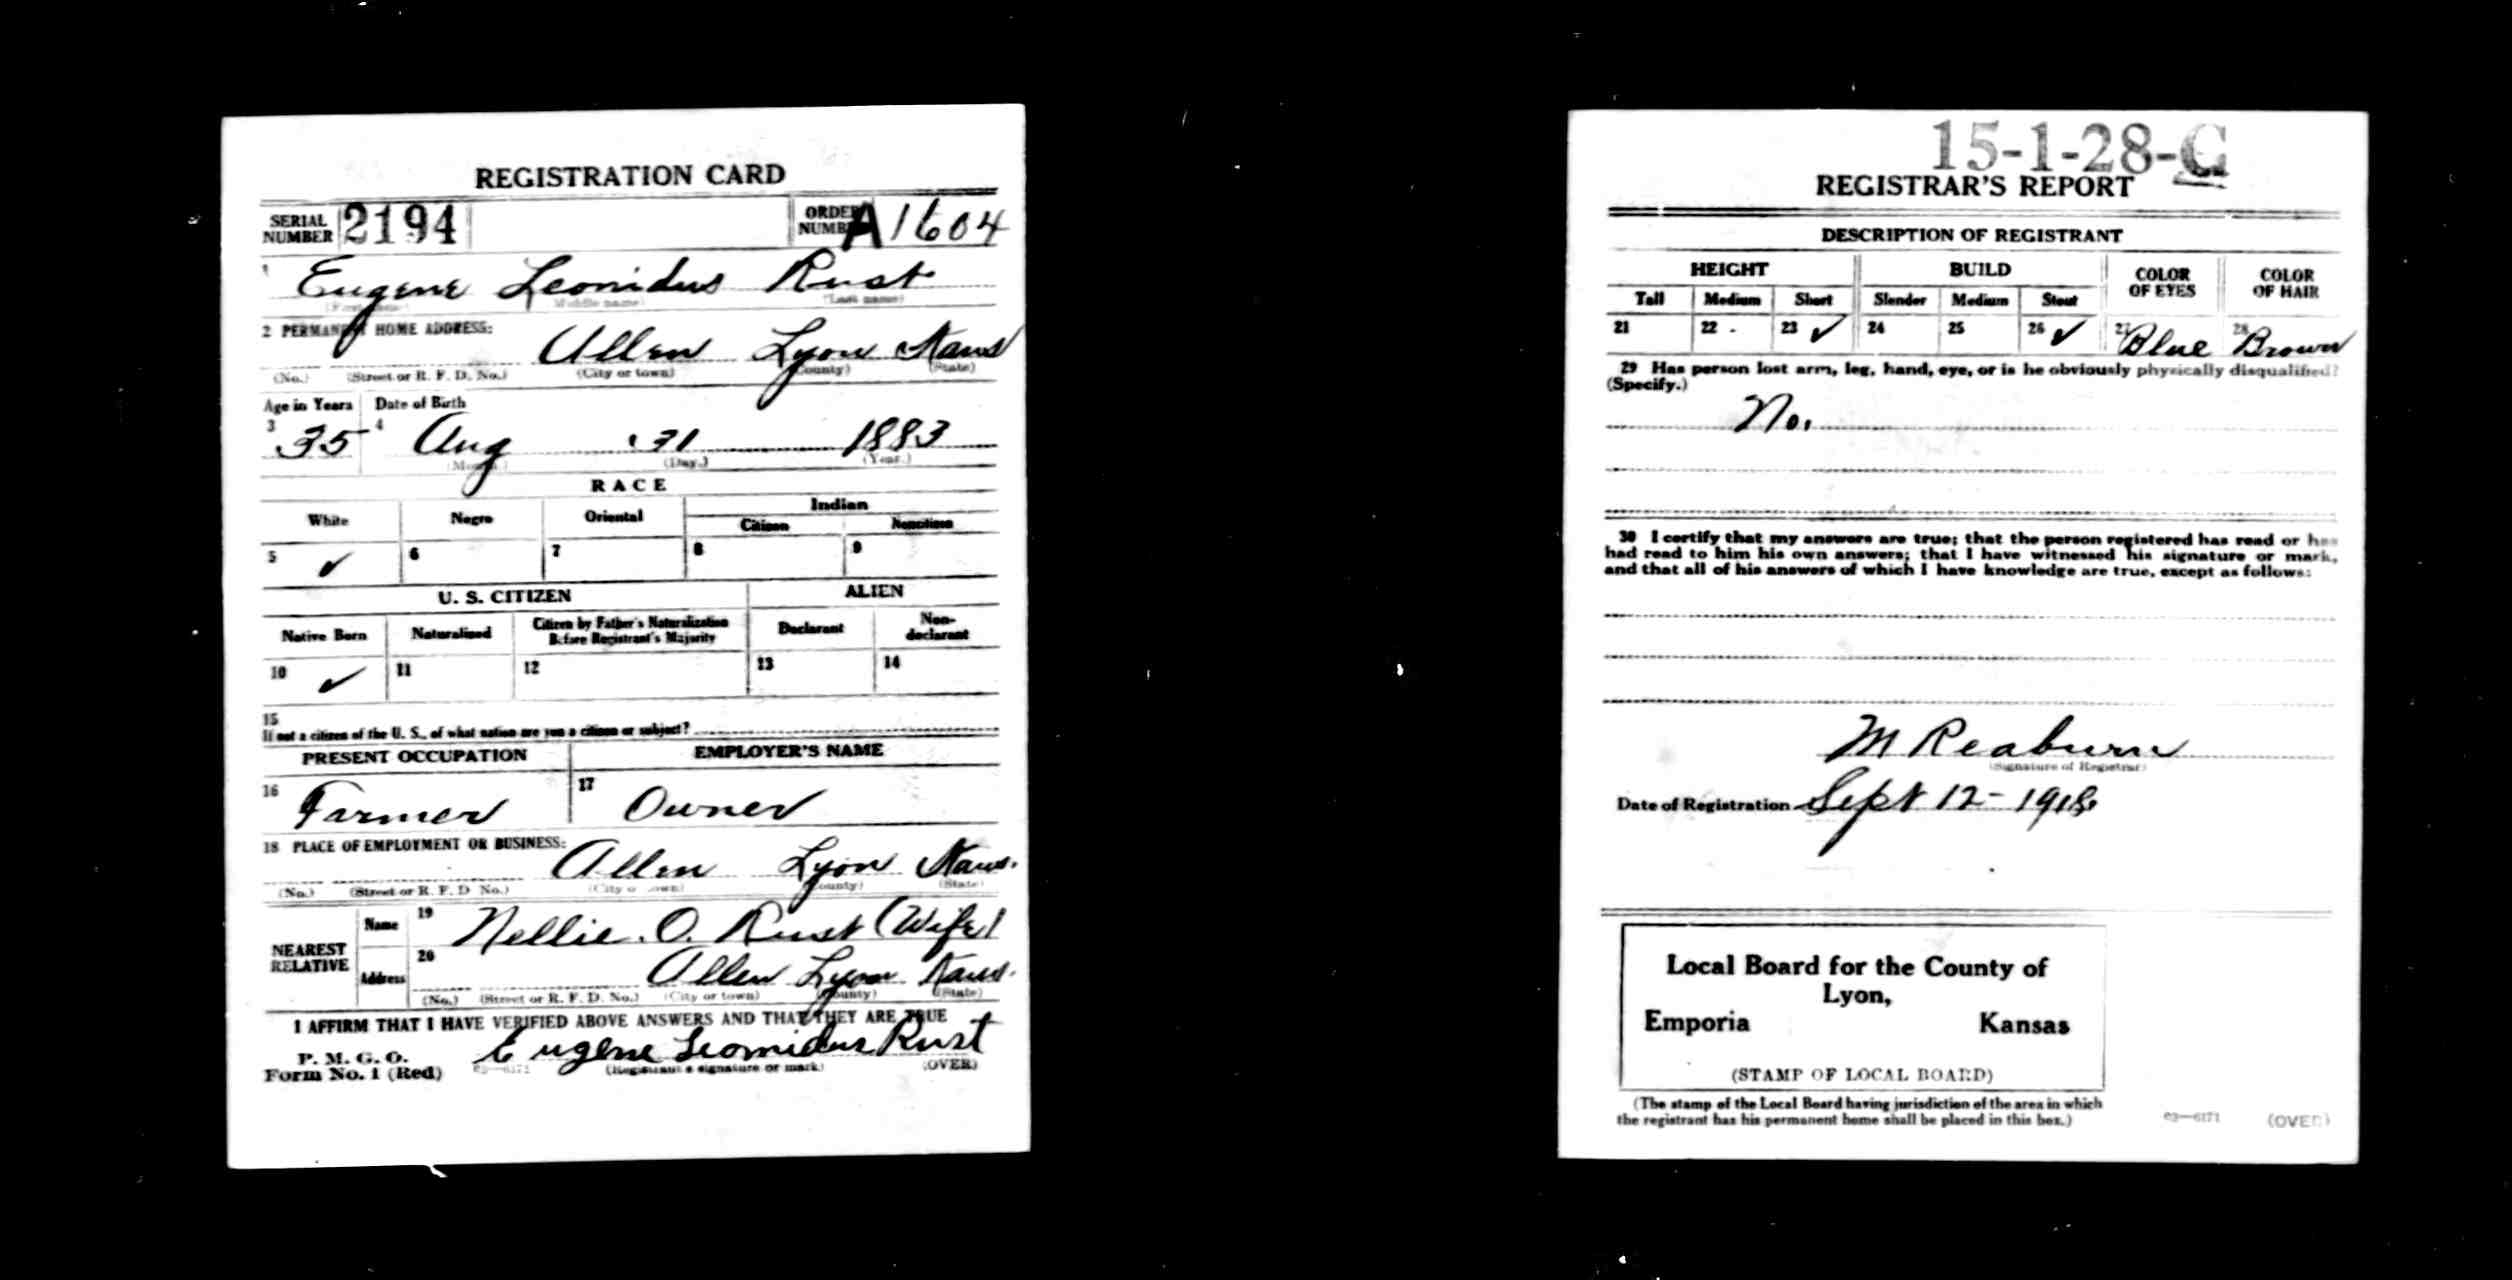 REGISTRATION CARD
SERIAL NUMBER 2194 ORDER NUMBER A1604
1 Eugene Leonidus Rust
(First name) (Middle name) (Last name)
2 PERMANENT HOME ADDRESS:
Allen Lyon Kans
(No.) (Street or R. F. D. No.) (City or town) (County) (State)
Age in Years Date of Birth
3 35 4 Aug 31 1883
(Month.) (Day.) (Year.)
RACE
White Negro Oriental Indian
Citizen Noncitizen
5 ✓ 6 7 8 9
U. S. CITIZEN ALIEN
Native Born Naturalized Citizen by Father's Naturalization Before Registrant's Majority Declarant Non-declarant
10 ✓ 11 12 13 14
15
If not a citizen of the U. S., of what nation are you a citizen or subject?
PRESENT OCCUPATION EMPLOYER'S NAME
16 Farmer 17 Owner
18 PLACE OF EMPLOYMENT OR BUSINESS:
Allen Lyon Kans.
(No.) (Street or R. F. D. No.) (City or town) (County) (State)
NEAREST RELATIVE
Name 19 Nellie. O. Rust (Wife)
Address 20 Allen Lyon Kans.
(No.) (Street or R. F. D. No.) (City or town) (County) (State)
I AFFIRM THAT I HAVE VERIFIED ABOVE ANSWERS AND THAT THEY ARE TRUE
P. M. G. O.
Form No. 1 (Red) Eugene Leonidus Rust
03—6171 (Registrant's signature or mark) (OVER)
15-1-28-C
REGISTRAR'S REPORT
DESCRIPTION OF REGISTRANT
HEIGHT BUILD COLOR OF EYES COLOR OF HAIR
Tall Medium Short Slender Medium Stout
21 22 23 ✓ 24 25 26 ✓ 27 Blue 28 Brown
29 Has person lost arm, leg, hand, eye, or is he obviously physically disqualified?
(Specify.)
No.
30 I certify that my answers are true; that the person registered has read or has
had read to him his own answers; that I have witnessed his signature or mark,
and that all of his answers of which I have knowledge are true, except as follows:
M Reaburn
(Signature of Registrar)
Date of Registration Sept 12 - 1918
Local Board for the County of
Lyon,
Emporia Kansas
(STAMP OF LOCAL BOARD)
(The stamp of the Local Board having jurisdiction of the area in which
the registrant has his permanent home shall be placed in this box.)
03—6171 (OVER)